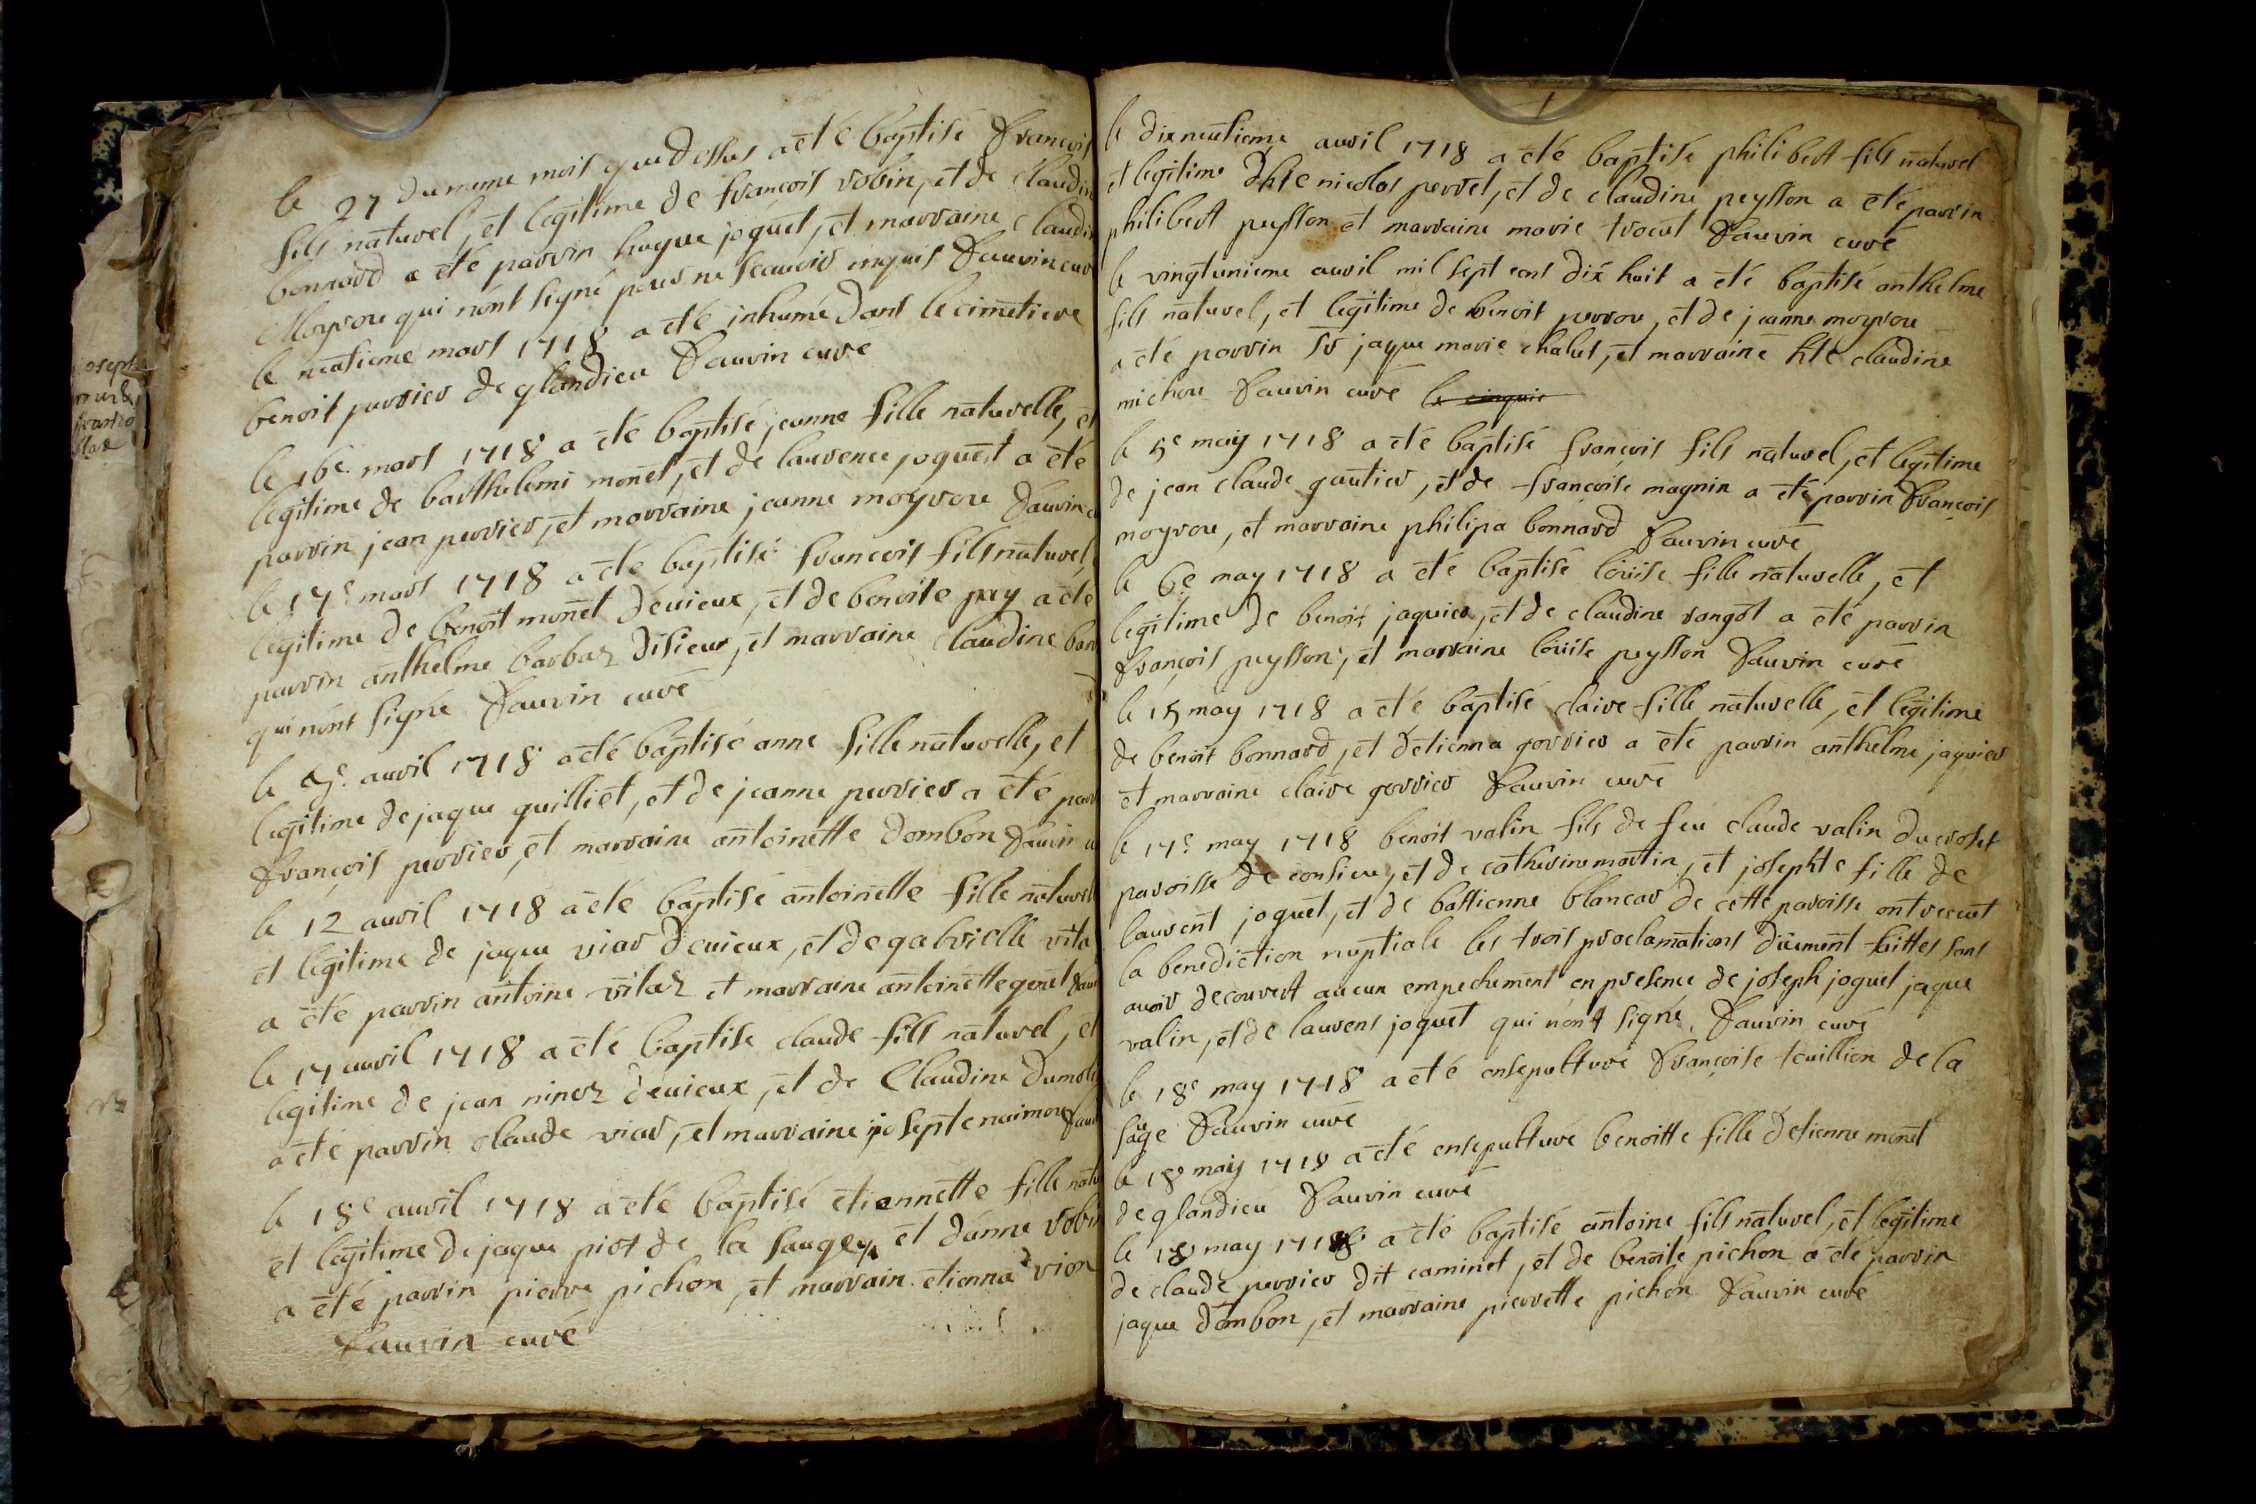 le 27 du meme mois que dessus a été baptisé françois
fils naturel, et legitime de françois robin, et de claudin
bonnard a été parrin hugue joquet, et marraine claudi
Moyroux qui n'ont signé pour ne scauoir requis Fauvin curé
le mars 1718 a été inhumé dans le cimetiere
benoit perrier de glandieu Fauvin curé
le 16e mars 1718 a été baptisé jeanne fille naturelle, et
legitime de barthelemi monet, et de laurence joquet a été
parrin jean perrier, et marraine jeanne moyroux Fauvin c
le 17e mars 1718 a été baptisé françois fils naturel,
legitime de benoit monet deuieux, et de benoite pey a été
parrin anthelme barbaz disieux, et marraine claudine bon
qui n'ont signé Fauvin curé
le auril 1718 a été baptisé anne fille naturelle, et
legitime de jaque quilliet, et de jeanne perrier a été par
françois perrier, et marraine antoinette dombon Fauvin c
le 12 auril 1718 a été baptisé antoinette fille naturell
et legitime de jaque viar deuieux, et de gabrielle vita
a été parrin antoine vitaz et marraine antoinette genet Fau
le 17 auril 1718 a été baptisé claude fils naturel, et
legitime de jean ninez deuieux, et de claudine dumol
a été parrin claude viar, et marraine josepte nuimoz Fau
le 18e auril 1718 a été baptisé etiennette fille natu
et legitime de jaque piot de la saugey et danne robin
a été parrin pierre pichon, et marrain etienna vion
Fauvin curé
josepte
françoi
le dixneufieme auril 1718 a été baptisé philibert fils naturel
et legitime dhte nicolas perret, et de claudine peysson a été parrin
philibert peysson et marraine marie trocut Fauvin curé
le vingtunieme auril mil sept cens dix huit a été baptisé anthelme
fils naturel, et legitime de benoit perroux, et de jeanne moyroux
a été parrin sr jaque marie chalut, et marraine hte claudine
michoux Fauvin curé le cinquie
le 5e may 1718 a été baptisé françois fils naturel, et legitime
de jean claude gautier, et de françoise magnin a été parrin françois
moyroux, et marraine philipa bonnard Fauvin curé
le 6e may 1718 a été baptisé loüise fille naturelle, et
legitime de benoit jaquier, et de claudine rangot a été parrin
françois peysson, et marraine loüise peysson Fauvin curé
le 15 may 1718 a été baptisé claire fille naturelle, et legitime
de benoit bonnard, et detienna gorrier a été parrin anthelme jaquier
et marraine claire gorrier Fauvin curé
le 17e may 1718 benoit valin fils de feu claude valin du croset
paroisse de consieu, et de catherine martin, et josephte fille de
laurent joquet, et de bastienne blancar de cette paroisse ont receut
la benediction nuptiale les trois proclamations düement faittes sans
auoir decouvert aucun empechement en presence de joseph joquet jaque
valin, et de laurens joquet qui n'ont signé Fauvin curé
le 18e may 1718 a été ensepulturé françoise teuillion de la
sage Fauvin curé
le 18e may 1718 a été ensepulturé benoitte fille detienne monet
de glandieu Fauvin curé
le 18 may 1718 a été baptisé antoine fils naturel, et legitime
de claude perrier dit caminet, et de benoite pichon a été parrin
jaque dombon, et marraine pierrette pichon Fauvin curé